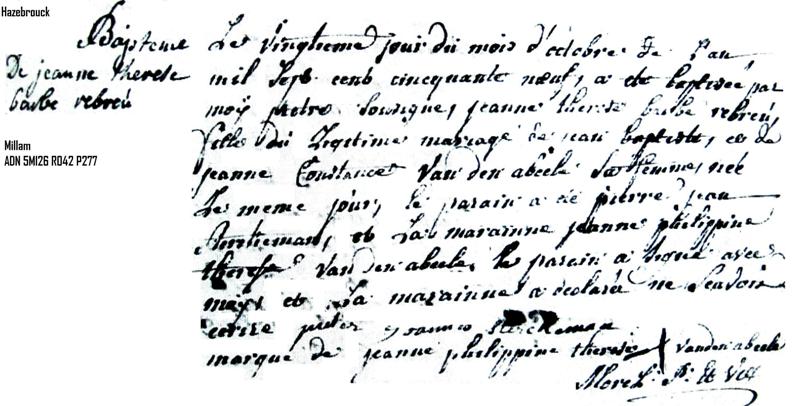 Hazebrouck
Bapteme
De jeanne therese
barbe rebreu
Millam
ADN 5MI26 R042 P277
Le vingtieme jour du mois d'octobre de l'an
mil sept cent cincquante neuf, a ete baptisée par
moy pretre soussigne, jeanne therese barbe rebreu,
fille du Legitime mariage de jean baptiste, et de
jeanne Constance Vanden abeele sa femme, née
Le meme jour, le parain a ete pierre jean
et La marainne jeanne philippine
therese Vanden abeele, le parain a signé avec
moy, et La marainne a declaré ne scavoir
ecrire pieter joannes
marque de jeanne philippine therese vanden abeele
Morel